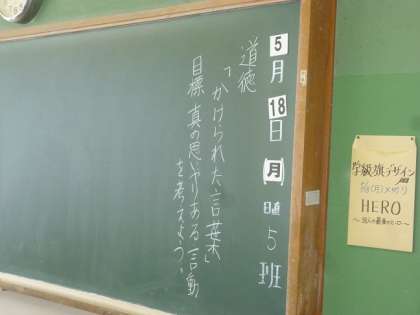 5月18日(月)
日直 5班
道徳
「かけられた言葉」
目標 真の思いやりある言動
を考えよう。
学級旗デザイン
HERO